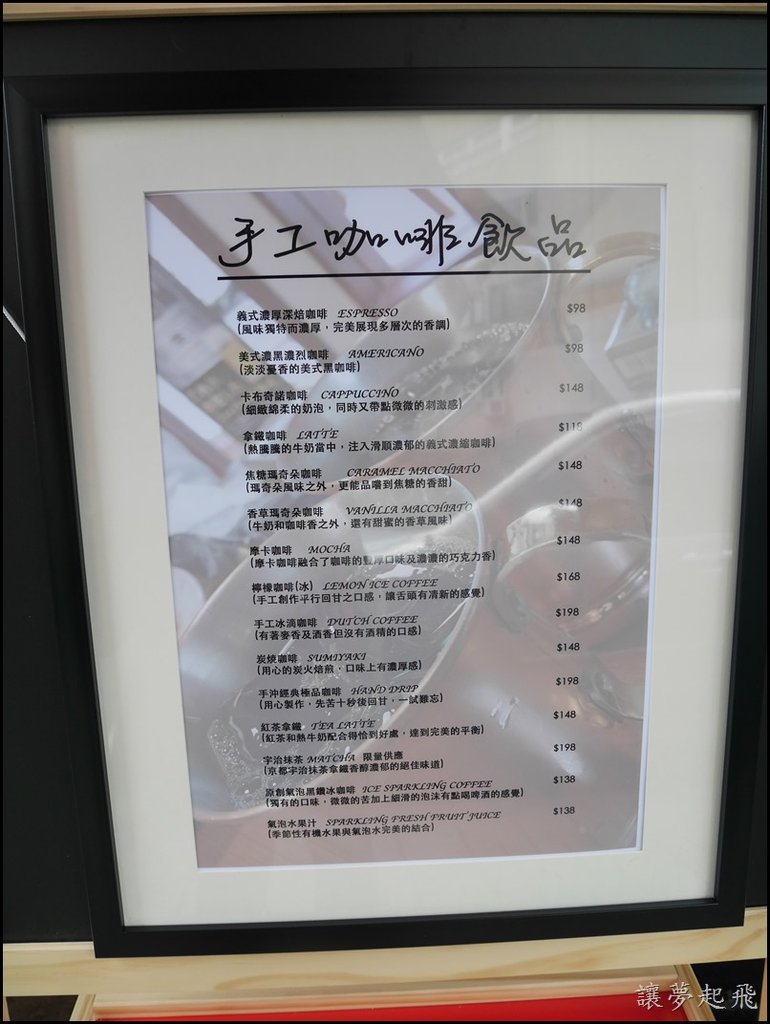 手工咖啡飲品
義式濃厚深焙咖啡 ESPRESSO $98
(風味獨特而濃厚，完美展現多層次的香調)
美式濃黑濃烈咖啡 AMERICANO $98
(淡淡憂香的美式黑咖啡)
卡布奇諾咖啡 CAPPUCCINO $148
(細緻綿柔的奶泡，同時又帶點微微的刺激感)
拿鐵咖啡 LATTE $118
(熱騰騰的牛奶當中，注入滑順濃郁的義式濃縮咖啡)
焦糖瑪奇朵咖啡 CARAMEL MACCHIATO $148
(瑪奇朵風味之外，更能品嚐到焦糖的香甜)
香草瑪奇朵咖啡 VANILLA MACCHIATO $148
(牛奶和咖啡香之外，還有甜蜜的香草風味)
摩卡咖啡 MOCHA $148
(摩卡咖啡融合了咖啡的豐厚口味及濃濃的巧克力香)
檸檬咖啡(冰) LEMON ICE COFFEE $168
(手工創作平行回甘之口感，讓舌頭有清新的感覺)
手工冰滴咖啡 DUTCH COFFEE $198
(有著麥香及酒香但沒有酒精的口感)
炭燒咖啡 SUMIYAKI $148
(用心的炭火焙煎，口味上有濃厚感)
手沖經典極品咖啡 HAND DRIP $198
(用心製作，先苦十秒後回甘，一試難忘)
紅茶拿鐵 TEA LATTE $148
(紅茶和熱牛奶配合得恰到好處，達到完美的平衡)
宇治抹茶 MATCHA 限量供應 $198
(京都宇治抹茶拿鐵香醇濃郁的絕佳味道)
原創氣泡黑鑽冰咖啡 ICE SPARKLING COFFEE $138
(獨有的口味，微微的苦加上細滑的泡沫有點喝啤酒的感覺)
氣泡水果汁 SPARKLING FRESH FRUIT JUICE $138
(季節性有機水果與氣泡水完美的結合)
讓夢起飛